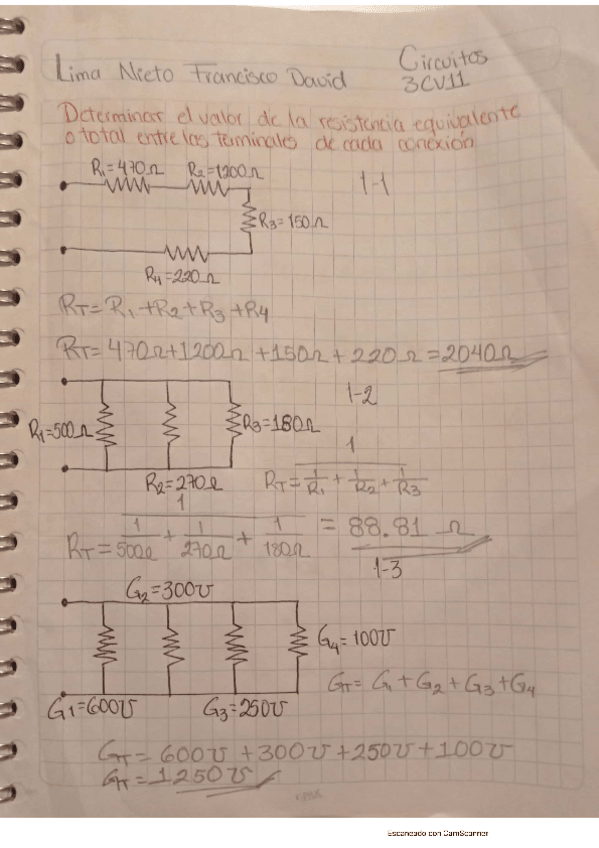 Lima Nieto Francisco David
Circuitos
3CV11
Determinar el valor de la resistencia equivalente
o total entre las terminales de cada conexión
R₁=470Ω R₂=1200Ω 1-1
R₃=150Ω
R₄=220Ω
RT=R₁+R₂+R₃+R₄
RT=470Ω+1200Ω+150Ω+220Ω=2040Ω
1-2
R₁=500Ω R₃=180Ω
R₂=270Ω
RT=1/(1/R₁+1/R₂+1/R₃)
RT=1/(1/500Ω+1/270Ω+1/180Ω)=88.81 Ω
1-3
G₂=300℧
G₄=100℧
GT=G₁+G₂+G₃+G₄
G1=600℧ G₃=250℧
GT=600℧+300℧+250℧+100℧
GT=1250℧
Escaneado con CamScanner